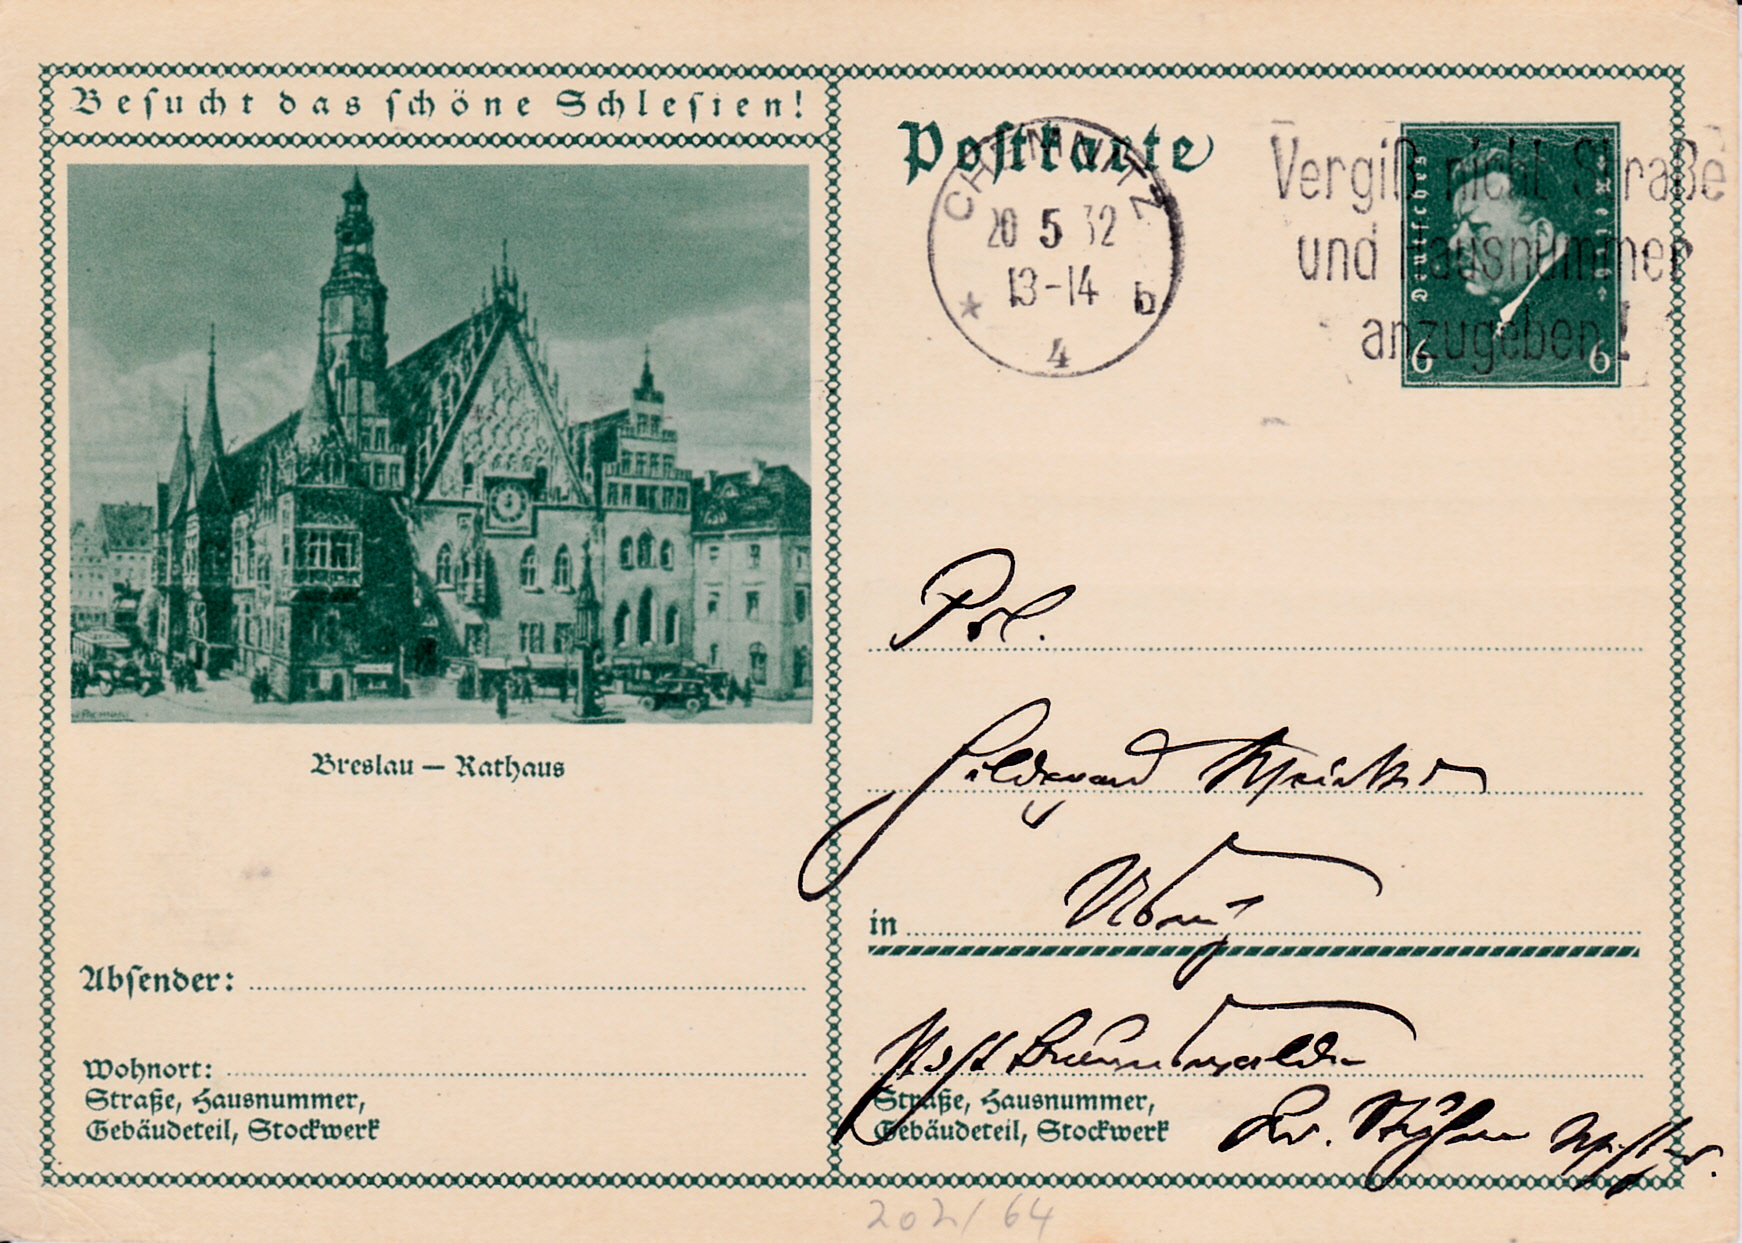 Besucht das schöne Schlesien!
Postkarte
CHEMNITZ
20 5 32
13-14 b
* 4
Vergiß nicht Straße
und Hausnummer
anzugeben!
Deutsches Reich
6 6
Breslau — Rathaus
Hildegard
in
Absender:
Post Braunswalde
Wohnort:
Straße, Hausnummer,
Gebäudeteil, Stockwerk
Straße, Hausnummer,
Gebäudeteil, Stockwerk
Kr. Stuhm Westpr.
202/64